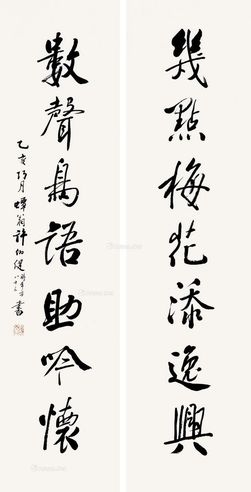 幾點梅花添逸興
數聲鳥語助吟懷
乙亥 月 翁許 書